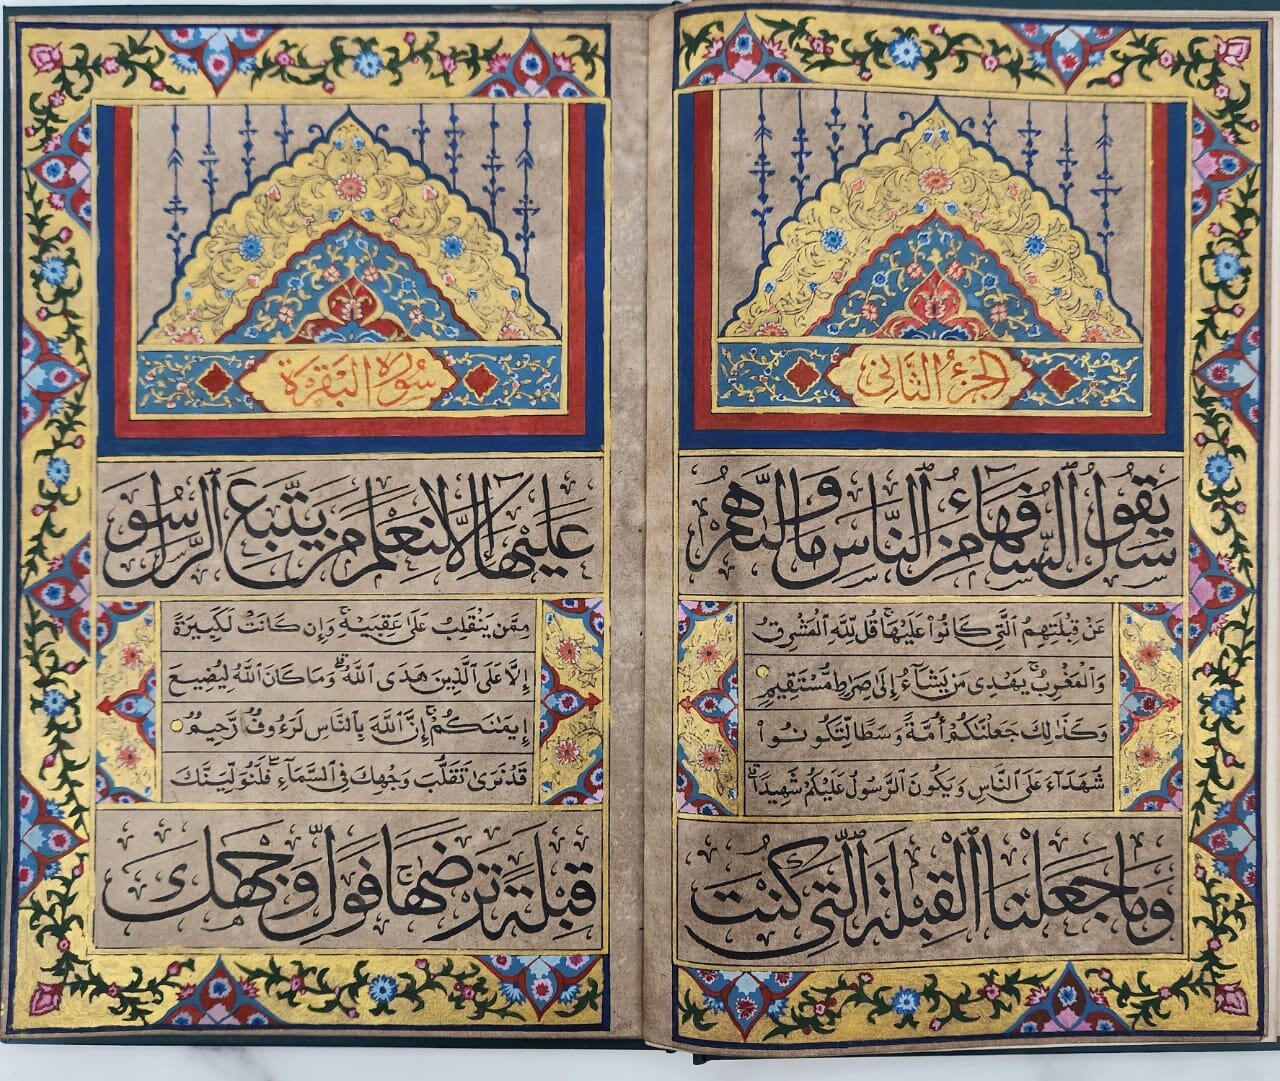 الجزء الثاني
سَيَقُولُ ٱلسُّفَهَآءُ مِنَ ٱلنَّاسِ مَا وَلَّىٰهُمْ
عَن قِبْلَتِهِمُ ٱلَّتِى كَانُوا۟ عَلَيْهَا ۚ قُل لِّلَّهِ ٱلْمَشْرِقُ
وَٱلْمَغْرِبُ ۚ يَهْدِى مَن يَشَآءُ إِلَىٰ صِرَٰطٍ مُّسْتَقِيمٍ
وَكَذَٰلِكَ جَعَلْنَٰكُمْ أُمَّةً وَسَطًا لِّتَكُونُوا۟
شُهَدَآءَ عَلَى ٱلنَّاسِ وَيَكُونَ ٱلرَّسُولُ عَلَيْكُمْ شَهِيدًا ۗ
وَمَا جَعَلْنَا ٱلْقِبْلَةَ ٱلَّتِى كُنتَ
سورة البقرة
عَلَيْهَآ إِلَّا لِنَعْلَمَ مَن يَتَّبِعُ ٱلرَّسُولَ
مِمَّن يَنقَلِبُ عَلَىٰ عَقِبَيْهِ ۚ وَإِن كَانَتْ لَكَبِيرَةً
إِلَّا عَلَى ٱلَّذِينَ هَدَى ٱللَّهُ ۗ وَمَا كَانَ ٱللَّهُ لِيُضِيعَ
إِيمَٰنَكُمْ ۚ إِنَّ ٱللَّهَ بِٱلنَّاسِ لَرَءُوفٌ رَّحِيمٌ
قَدْ نَرَىٰ تَقَلُّبَ وَجْهِكَ فِى ٱلسَّمَآءِ ۖ فَلَنُوَلِّيَنَّكَ
قِبْلَةً تَرْضَىٰهَا ۚ فَوَلِّ وَجْهَكَ